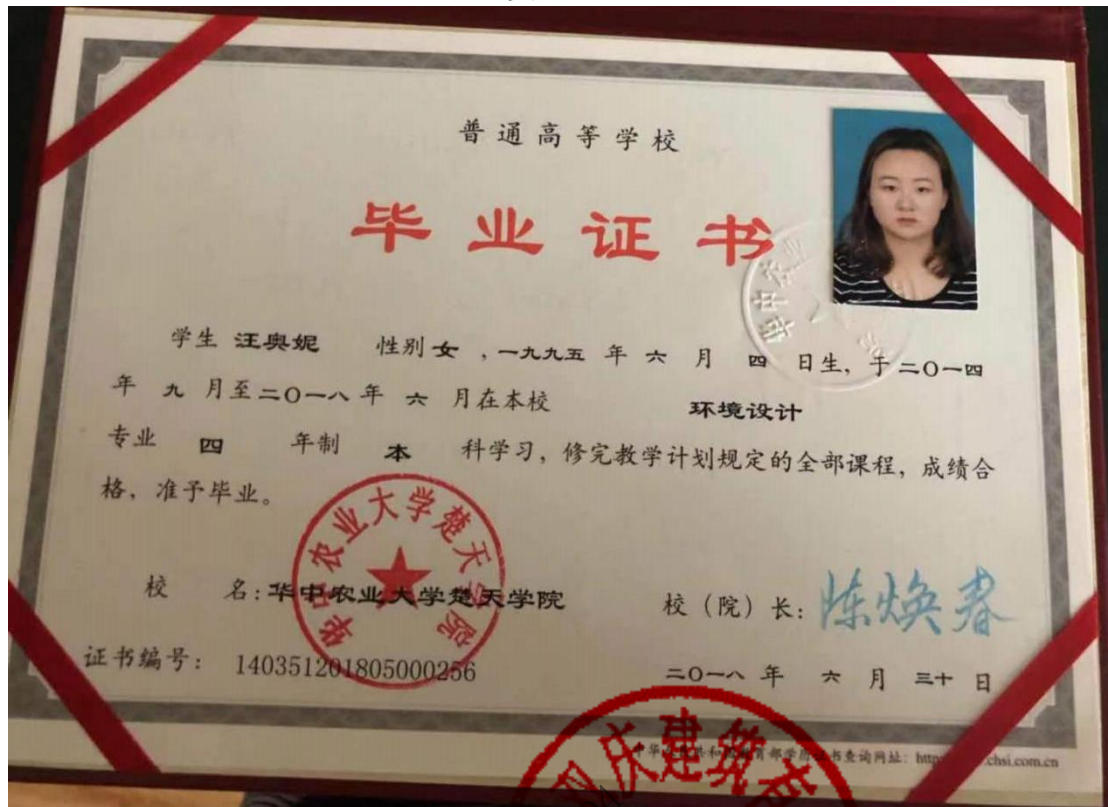 普通高等学校
毕业证书
学生 汪奥妮 性别 女 ，一九九五 年 六 月 四 日生，于二〇一四
年 九 月至二〇一八年 六 月在本校 环境设计
专业 四 年制 本 科学习，修完教学计划规定的全部课程，成绩合
格，准予毕业。
华中农业大学楚天学院
校 名：华中农业大学楚天学院
校（院）长：陈焕春
证书编号： 140351201805000256
二〇一八 年 六 月 三十 日
庆建筑
中华 共和 育部学历 书查询网址： http chsi.com.cn
华中农业